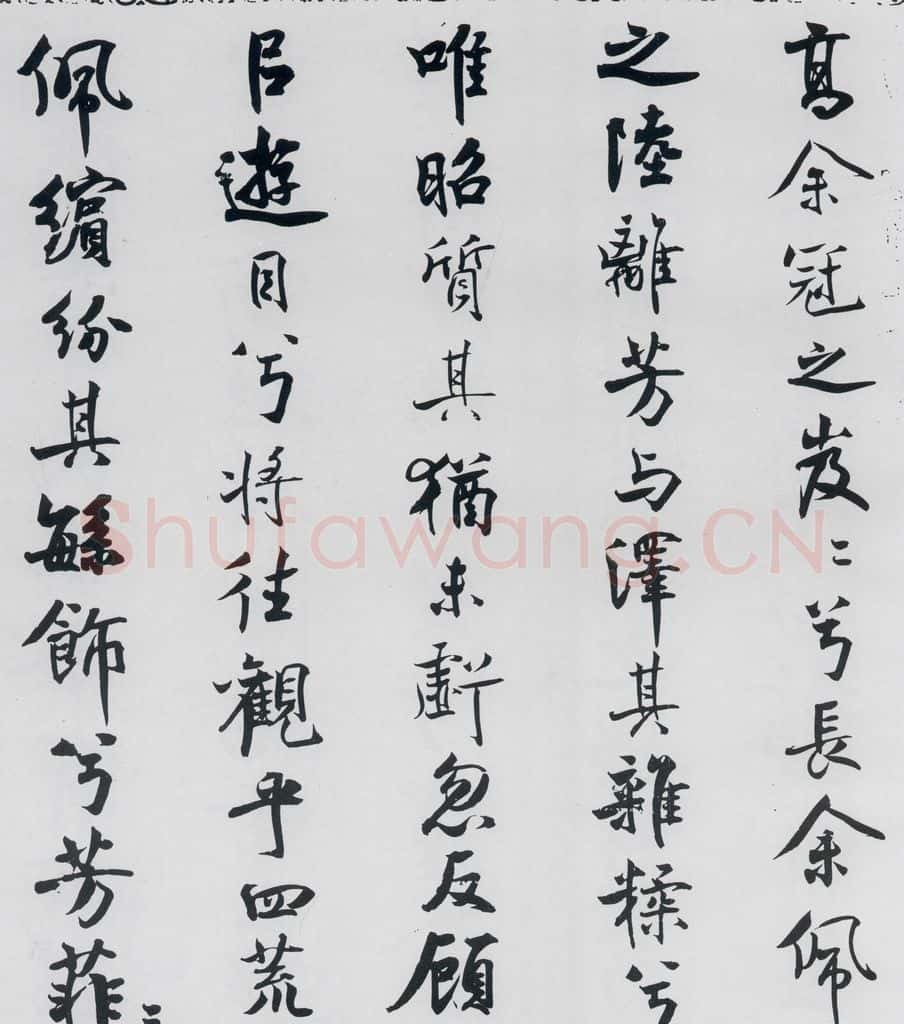 高余冠之岌二兮長余佩
之陸離芳与澤其雜糅兮
唯昭質其猶未虧忽反顧
㠯遊目兮将往觀乎四荒
佩繽紛其繁飾兮芳菲二
Shufawang.CN